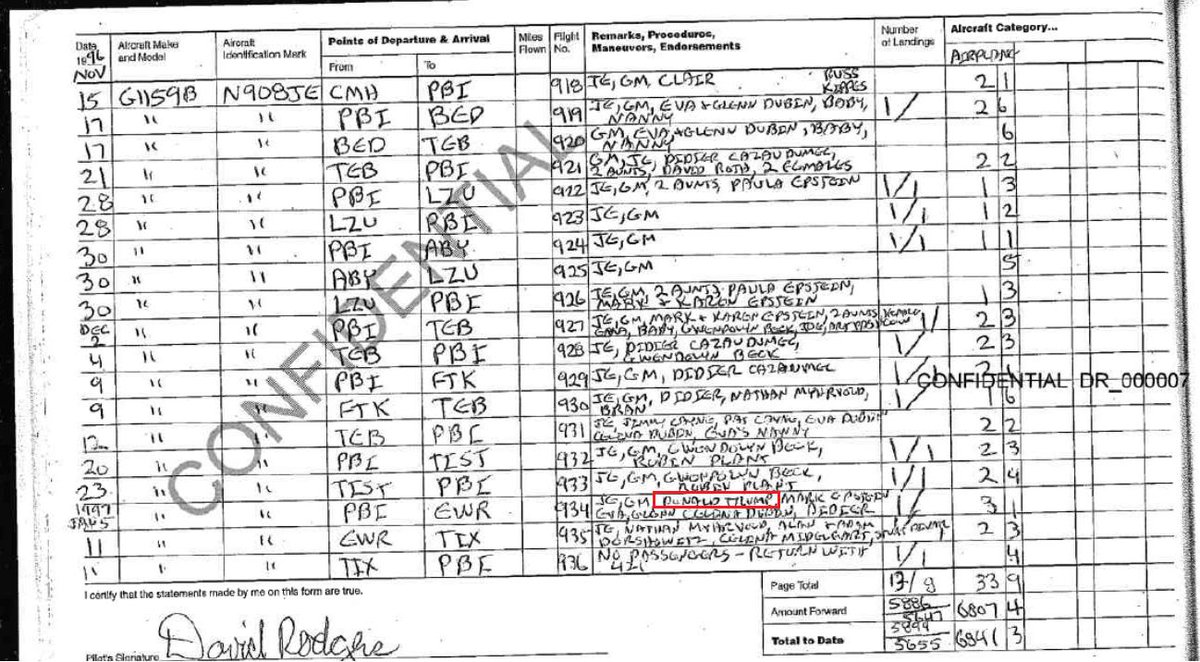 Date Aircraft Make and Model Aircraft Identification Mark Points of Departure & Arrival Miles Flown Flight No. Remarks, Procedures, Maneuvers, Endorsements Number of Landings Aircraft Category...
1996 From To AIRPLANE
NOV
15 G1159B N908JE CMH PBI 918 JE, GM, CLAIR RUSS KIPPES 2 1
17 " " PBI BED 919 JE, GM, EVA + GLENN DUBIN, BABY, NANNY 1/ 2 6
17 " " BED TEB 920 GM, EVA + GLENN DUBIN, BABY, NANNY 6
21 " " TEB PBI 921 GM, JE, DIDIER CAZAUDUMEC, 2 AUNTS, DAVID ROTH, 2 FEMALES 2 2
28 " " PBI LZU 922 JE, GM, 2 AUNTS, PAULA EPSTEIN 1/1 1 3
28 " " LZU PBI 923 JE, GM 1/1 1 2
30 " " PBI ABY 924 JE, GM 1/1 1 1
30 " " ABY LZU 925 JE, GM 5
30 " " LZU PBI 926 JE, GM, 2 AUNTS, PAULA EPSTEIN, MARK + KAREN EPSTEIN 1 3
DEC
2 " " PBI TEB 927 JE, GM, MARK + KAREN EPSTEIN, 2 AUNTS, BABY, GWENDOLYN BECK, JOE, 1/ 2 3
4 " " TEB PBI 928 JE, DIDIER CAZAUDUMEC, GWENDOLYN BECK 1/ 2 3
9 " " PBI FTK 929 JE, GM, DIDIER CAZAUDUMEC 1/
9 " " FTK TEB 930 JE, GM, DIDIER, NATHAN MYHRVOLD, BRAN 1/ 1 6
12 " " TEB PBI 931 JE, PAT EVA DUBIN CELINA DUBIN, EVA'S NANNY 2 2
20 " " PBI TIST 932 JE, GM, GWENDOLYN BECK, ROBIN PLANT 1/1 2 3
23 " " TIST PBI 933 JE, GM, GWENDOLYN BECK, ROBIN PLANT 1/1 2 4
1997
JAN 5 " " PBI EWR 934 JE, GM, DONALD TRUMP, MARK EPSTEIN EVA, GLENN CELINA DUBIN, DIDIER 1/ 3 1
11 " " EWR TIX 935 JE, NATHAN MYHRVOLD, ALAN + ADAM DERSHOWITZ, CELINA 2 3
" " " TIX PBI 936 NO PASSENGERS - RETURN WITH 1/1 4
CONFIDENTIAL
CONFIDENTIAL DR_000007
I certify that the statements made by me on this form are true.
Page Total 13/8 33 9
Amount Forward 5886 5647 6807 4
Total to Date 5899 5655 6841 3
David Rodgers
Pilot's Signature